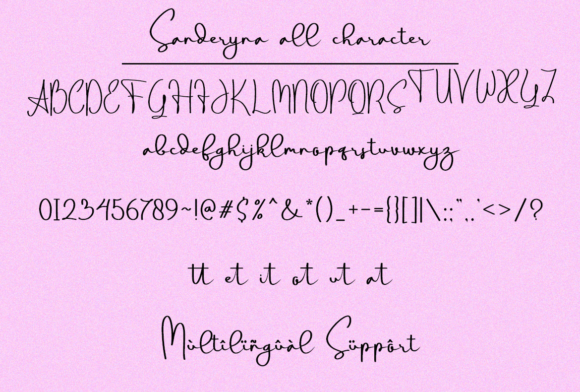 Sanderyna all character
ABCDEFGHIJKLMNOPQRSTUVWXYZ
abcdefghijklmnopqrstuvwxyz
0123456789~!@#$%^&*()_+-={}[]|\:;",.'<>/?
tt et it ot ut at
Mùltîlïñgûàl Süppôrt